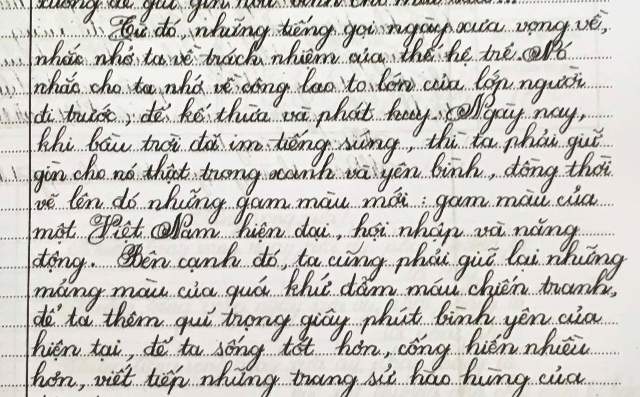 xuống để giữ gìn hoà bình cho
Từ đó, những tiếng gọi ngày xưa vọng về,
nhắc nhở ta về trách nhiệm của thế hệ trẻ. Nó
nhắc cho ta nhớ về công lao to lớn của lớp người
đi trước, để kế thừa và phát huy. Ngày nay,
khi bầu trời đã im tiếng súng, thì ta phải giữ
gìn cho nó thật trong xanh và yên bình, đồng thời
vẽ lên đó những gam màu mới: gam màu của
một Việt Nam hiện đại, hội nhập và năng
động. Bên cạnh đó, ta cũng phải giữ lại những
mảng màu của quá khứ đẫm máu chiến tranh,
để ta thêm quí trọng giây phút bình yên của
hiện tại, để ta sống tốt hơn, cống hiến nhiều
hơn, viết tiếp những trang sử hào hùng của